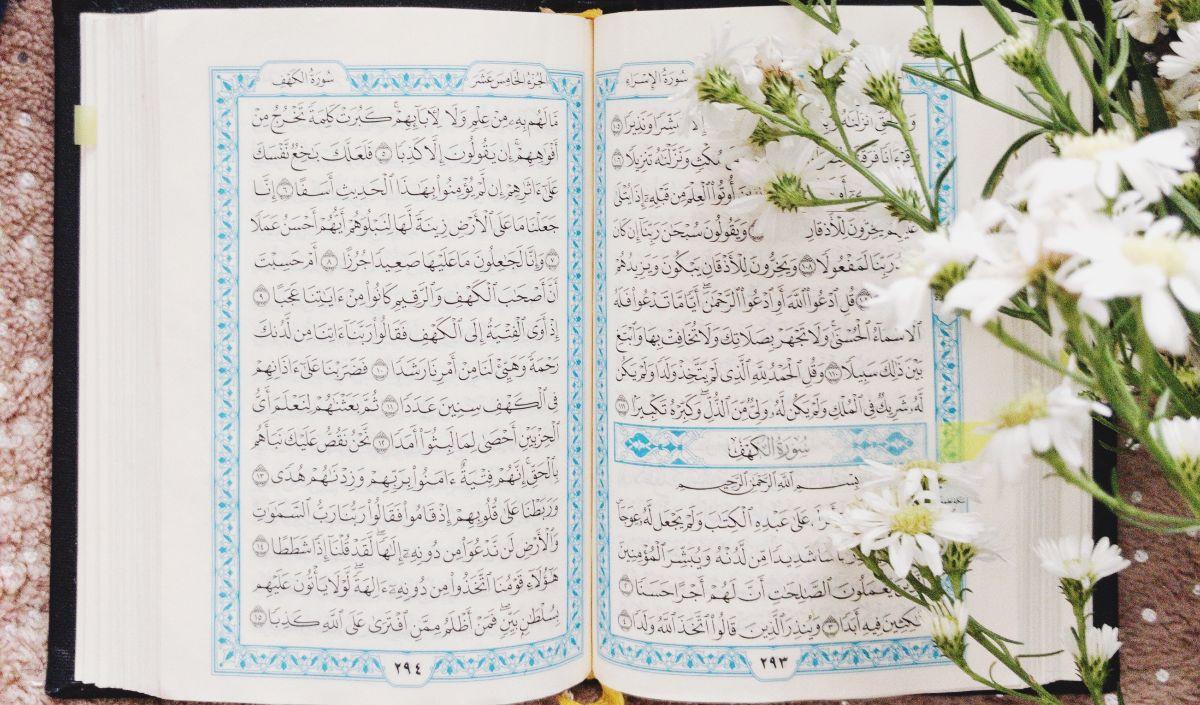 سُورَةُ الإِسْرَاءِ
أَنزَلْنَٰهُ إِلَّا وَنَذِيرًا ١٠٥
فَرَقْنَٰهُ مُكْثٍ وَنَزَّلْنَٰهُ تَنزِيلًا ١٠٦
أُوتُوا۟ ٱلْعِلْمَ مِن قَبْلِهِۦٓ إِذَا يُتْلَىٰ
عَلَيْهِمْ يَخِرُّونَ لِلْأَذْقَانِ وَيَقُولُونَ سُبْحَٰنَ رَبِّنَآ إِن كَانَ
وَعْدُ رَبِّنَا لَمَفْعُولًا ١٠٨ وَيَخِرُّونَ لِلْأَذْقَانِ يَبْكُونَ وَيَزِيدُهُمْ
قُلِ ٱدْعُوا۟ ٱللَّهَ أَوِ ٱدْعُوا۟ ٱلرَّحْمَٰنَ ۖ أَيًّا مَّا تَدْعُوا۟ فَلَهُ
ٱلْأَسْمَآءُ ٱلْحُسْنَىٰ ۚ وَلَا تَجْهَرْ بِصَلَاتِكَ وَلَا تُخَافِتْ بِهَا وَٱبْتَغِ
بَيْنَ ذَٰلِكَ سَبِيلًا ١١٠ وَقُلِ ٱلْحَمْدُ لِلَّهِ ٱلَّذِى لَمْ يَتَّخِذْ وَلَدًا وَلَمْ يَكُن
لَّهُۥ شَرِيكٌ فِى ٱلْمُلْكِ وَلَمْ يَكُن لَّهُۥ وَلِىٌّ مِّنَ ٱلذُّلِّ ۖ وَكَبِّرْهُ تَكْبِيرًۢا ١١١
سُورَةُ الكَهْفِ
بِسْمِ ٱللَّهِ ٱلرَّحْمَٰنِ ٱلرَّحِيمِ
عَلَىٰ عَبْدِهِ ٱلْكِتَٰبَ وَلَمْ يَجْعَل لَّهُۥ عِوَجَا
شَدِيدًا مِّن لَّدُنْهُ وَيُبَشِّرَ ٱلْمُؤْمِنِينَ
يَعْمَلُونَ ٱلصَّٰلِحَٰتِ أَنَّ لَهُمْ أَجْرًا حَسَنًا ٢
مَّٰكِثِينَ فِيهِ أَبَدًا ٣ وَيُنذِرَ ٱلَّذِينَ قَالُوا۟ ٱتَّخَذَ ٱللَّهُ وَلَدًا ٤
٢٩٣
الجُزْءُ الخَامِسَ عَشَرَ
سُورَةُ الكَهْفِ
مَّا لَهُم بِهِۦ مِنْ عِلْمٍ وَلَا لِءَابَآئِهِمْ ۚ كَبُرَتْ كَلِمَةً تَخْرُجُ مِنْ
أَفْوَٰهِهِمْ ۚ إِن يَقُولُونَ إِلَّا كَذِبًا ٥ فَلَعَلَّكَ بَٰخِعٌ نَّفْسَكَ
عَلَىٰٓ ءَاثَٰرِهِمْ إِن لَّمْ يُؤْمِنُوا۟ بِهَٰذَا ٱلْحَدِيثِ أَسَفًا ٦ إِنَّا
جَعَلْنَا مَا عَلَى ٱلْأَرْضِ زِينَةً لَّهَا لِنَبْلُوَهُمْ أَيُّهُمْ أَحْسَنُ عَمَلًا
٧ وَإِنَّا لَجَٰعِلُونَ مَا عَلَيْهَا صَعِيدًا جُرُزًا ٨ أَمْ حَسِبْتَ
أَنَّ أَصْحَٰبَ ٱلْكَهْفِ وَٱلرَّقِيمِ كَانُوا۟ مِنْ ءَايَٰتِنَا عَجَبًا ٩
إِذْ أَوَى ٱلْفِتْيَةُ إِلَى ٱلْكَهْفِ فَقَالُوا۟ رَبَّنَآ ءَاتِنَا مِن لَّدُنكَ
رَحْمَةً وَهَيِّئْ لَنَا مِنْ أَمْرِنَا رَشَدًا ١٠ فَضَرَبْنَا عَلَىٰٓ ءَاذَانِهِمْ
فِى ٱلْكَهْفِ سِنِينَ عَدَدًا ١١ ثُمَّ بَعَثْنَٰهُمْ لِنَعْلَمَ أَىُّ
ٱلْحِزْبَيْنِ أَحْصَىٰ لِمَا لَبِثُوٓا۟ أَمَدًا ١٢ نَّحْنُ نَقُصُّ عَلَيْكَ نَبَأَهُم
بِٱلْحَقِّ ۚ إِنَّهُمْ فِتْيَةٌ ءَامَنُوا۟ بِرَبِّهِمْ وَزِدْنَٰهُمْ هُدًى ١٣
وَرَبَطْنَا عَلَىٰ قُلُوبِهِمْ إِذْ قَامُوا۟ فَقَالُوا۟ رَبُّنَا رَبُّ ٱلسَّمَٰوَٰتِ
وَٱلْأَرْضِ لَن نَّدْعُوَا۟ مِن دُونِهِۦٓ إِلَٰهًا ۖ لَّقَدْ قُلْنَآ إِذًا شَطَطًا ١٤
هَٰٓؤُلَآءِ قَوْمُنَا ٱتَّخَذُوا۟ مِن دُونِهِۦٓ ءَالِهَةً ۖ لَّوْلَا يَأْتُونَ عَلَيْهِم
بِسُلْطَٰنٍۭ بَيِّنٍ ۖ فَمَنْ أَظْلَمُ مِمَّنِ ٱفْتَرَىٰ عَلَى ٱللَّهِ كَذِبًا ١٥
٢٩٤